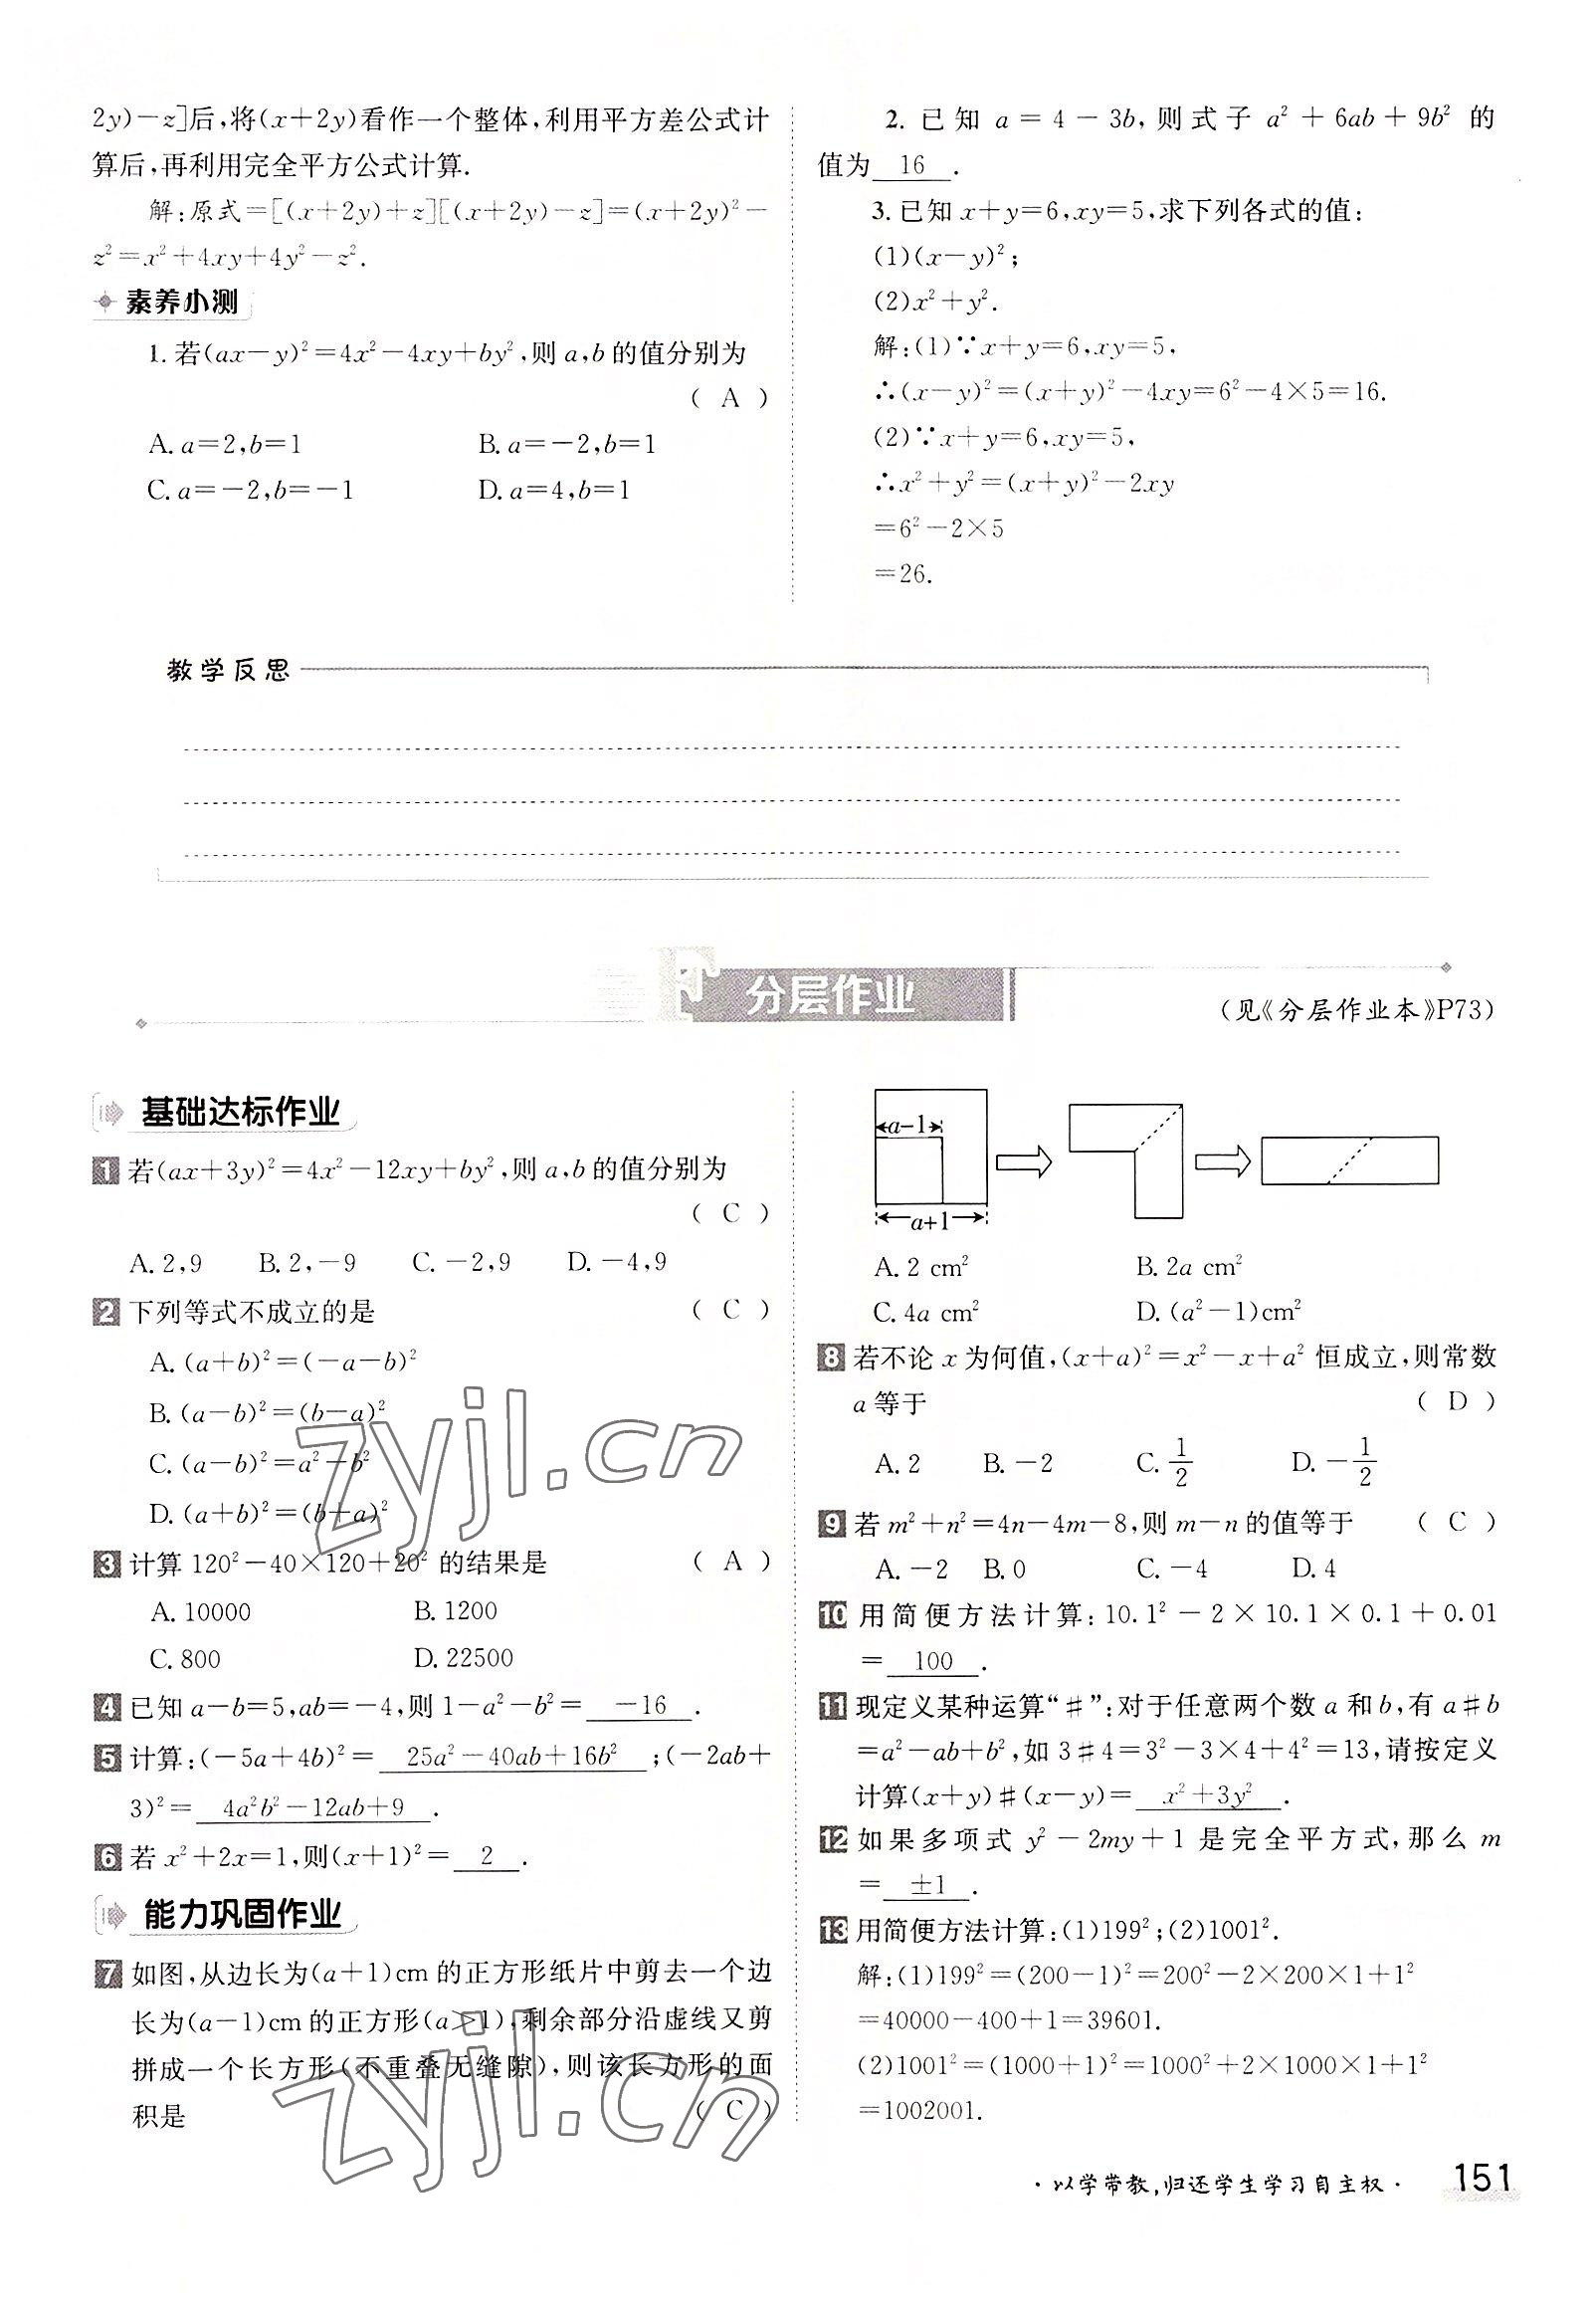 2y)－z]后,将(x＋2y)看作一个整体,利用平方差公式计
算后,再利用完全平方公式计算.
解:原式=[(x＋2y)＋z][(x＋2y)－z]=(x＋2y)²－
z²=x²＋4xy＋4y²－z².
素养小测
1. 若(ax－y)²=4x²－4xy＋by²,则a,b的值分别为
( A )
A. a=2,b=1 B. a=－2,b=1
C. a=－2,b=－1 D. a=4,b=1
2. 已知 a = 4 － 3b, 则式子 a² ＋ 6ab ＋ 9b² 的
值为 16 .
3. 已知x＋y=6,xy=5,求下列各式的值:
(1)(x－y)²;
(2)x²＋y².
解:(1)∵x＋y=6,xy=5,
∴(x－y)²=(x＋y)²－4xy=6²－4×5=16.
(2)∵x＋y=6,xy=5,
∴x²＋y²=(x＋y)²－2xy
=6²－2×5
=26.
教学反思
分层作业
(见《分层作业本》P73)
基础达标作业
1 若(ax＋3y)²=4x²－12xy＋by²,则a,b的值分别为
( C )
A. 2,9 B. 2,－9 C. －2,9 D. －4,9
2 下列等式不成立的是 ( C )
A. (a＋b)²=(－a－b)²
B. (a－b)²=(b－a)²
C. (a－b)²=a²－b²
D. (a＋b)²=(b＋a)²
3 计算 120²－40×120＋20² 的结果是 ( A )
A. 10000 B. 1200
C. 800 D. 22500
4 已知 a－b=5,ab=－4,则 1－a²－b²= －16 .
5 计算:(－5a＋4b)²= 25a²－40ab＋16b² ;(－2ab＋
3)²= 4a²b²－12ab＋9 .
6 若 x²＋2x=1,则(x＋1)²= 2 .
能力巩固作业
7 如图,从边长为(a＋1)cm的正方形纸片中剪去一个边
长为(a－1)cm的正方形(a>1),剩余部分沿虚线又剪
拼成一个长方形(不重叠无缝隙),则该长方形的面
积是 ( C )
a－1
a＋1
A. 2 cm² B. 2a cm²
C. 4a cm² D. (a²－1)cm²
8 若不论 x 为何值,(x＋a)²=x²－x＋a² 恒成立,则常数
a 等于 ( D )
A. 2 B. －2 C. 1/2 D. －1/2
9 若 m²＋n²=4n－4m－8,则 m－n 的值等于 ( C )
A. －2 B. 0 C. －4 D. 4
10 用简便方法计算: 10.1² － 2 × 10.1 × 0.1 ＋ 0.01
= 100 .
11 现定义某种运算“♯”:对于任意两个数 a 和 b,有 a♯b
=a²－ab＋b²,如 3♯4=3²－3×4＋4²=13,请按定义
计算(x＋y)♯(x－y)= x²＋3y² .
12 如果多项式 y² － 2my ＋ 1 是完全平方式,那么 m
= ±1 .
13 用简便方法计算:(1)199²;(2)1001².
解:(1)199²=(200－1)²=200²－2×200×1＋1²
=40000－400＋1=39601.
(2)1001²=(1000＋1)²=1000²＋2×1000×1＋1²
=1002001.
zyjl.cn
zyjl.cn
·以学带教,归还学生学习自主权· 151